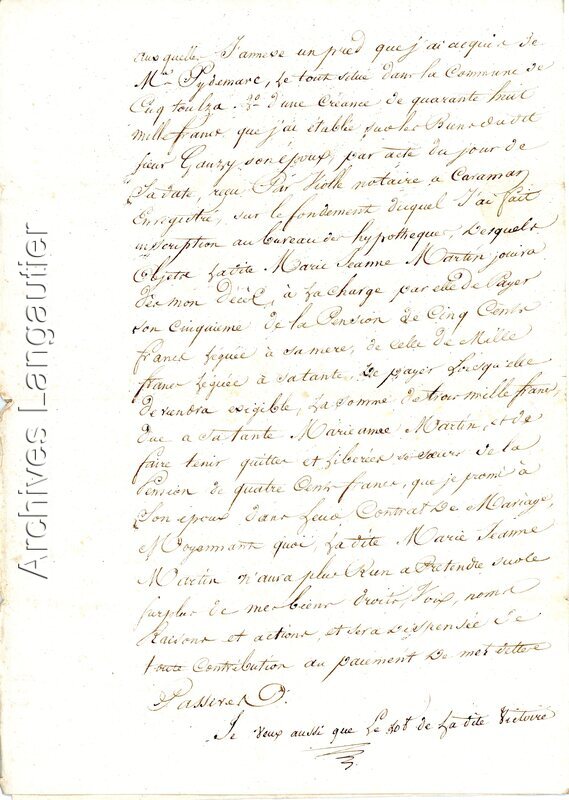 auxquelles J'annexe un pred que j'ai acquis de
Mr. Pydemarc, le tout situé dans la Commune de
Cuq toulza No. d'une Créance de quarante huit
mille francs que j'ai établie sur les Biens du dit
sieur Gauzy son époux, par acte du jour de
Sa date, reçu Par Violle notaire a Caraman
Enregistré, sur le fondement duquel J'ai fait
inscription au bureau des hypotheques, Desquels
Objets La dite Marie Jeanne Martin jouira
dès mon décès, à La charge par elle de Payer
son Cinquieme de la Pension de Cinq Cents
francs Léguée à sa mere, de celle de Mille
francs Léguée à sa tante, de payer Lorsqu'elle
deviendra exigible, La somme de trois mille francs
due a sa tante Marie anne Martin, et de
faire tenir quittes et libérées ses sœurs de la
Pension de quatre Cents francs, que je promis à
Son époux dans Leur Contrat de Mariage,
Moyennant quoi, La dite Marie Jeanne
Martin n'aura plus Rien a Pretendre sur le
surplus de mes biens droits, Voix, noms
Raisons et actions, et sera Dispensée de
toute Contribution au paiement de mes dettes
Passives
Je veux aussi que Le lot de La dite Victoire
Archives Langautier